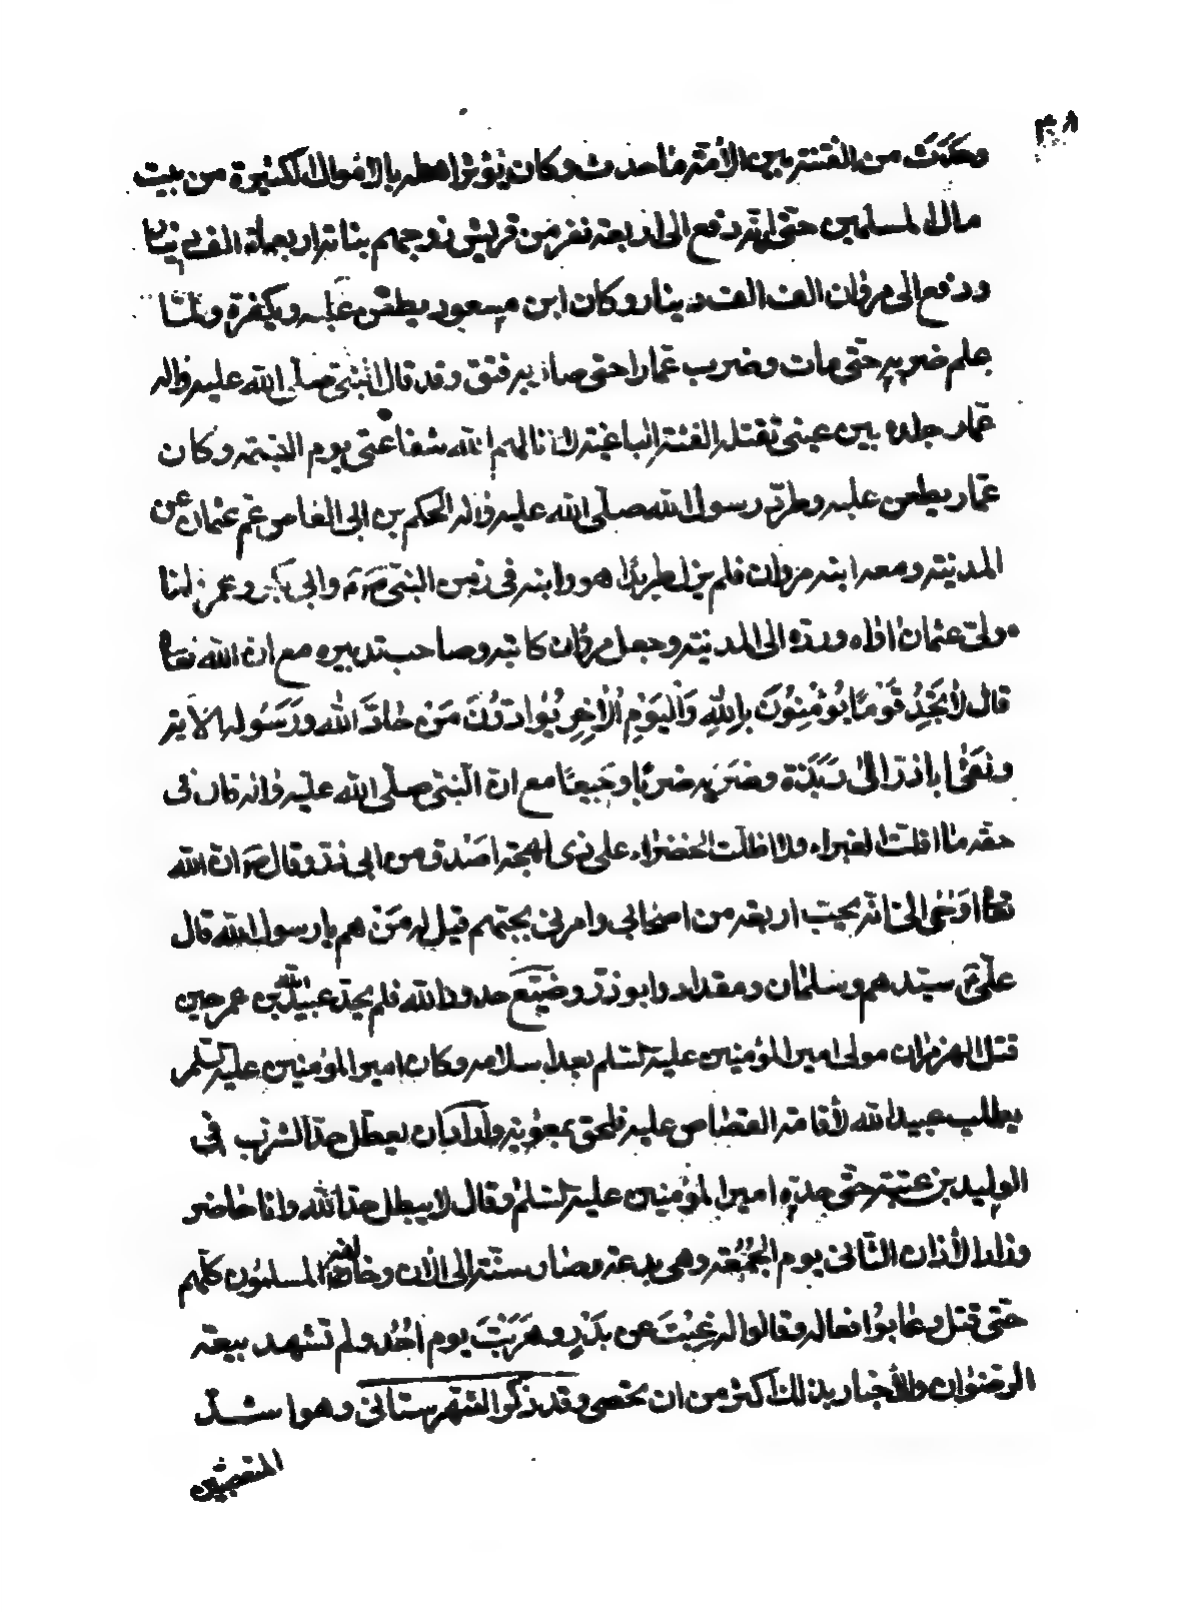 ٣٨
وحدث من الفتنة بين الأمة ما حدث وكان يؤثر اهله بالاموال الكثيرة من بيت
مال المسلمين حتى انه دفع الى اربعة نفر من قريش زوجهم بناته اربعمأة الف دينار
ودفع الى مروان الف الف دينار وكان ابن مسعود يطعن عليه ويكفره ولمّا
علم ضربه حتى مات وضرب عمارا حتى صار به فتق وقد قال النبي صلى الله عليه واله
عمار جلدة بين عيني تقتله الفئة الباغية لا انالهم الله شفاعتي يوم القيمة وكان
عمار يطعن عليه وطرد رسول الله صلى الله عليه واله الحكم بن ابي العاص عم عثمان عن
المدينة ومعه ابنه مروان فلم يزل طريدا هو وابنه في زمن النبي ص م وابي بكر وعمر فلما
ولي عثمان اواه ورده الى المدينة وجعل مروان كاتبه وصاحب تدبيره مع ان الله تعالى
قال لَا تَجِدُ قَوْمًا يُؤْمِنُونَ بِاللَّهِ وَالْيَوْمِ الْآخِرِ يُوَادُّونَ مَنْ حَادَّ اللهَ وَرَسُولَه الآية
ونفى اباذر الى ربذة وضربه ضربا وجيعا مع ان النبي صلى الله عليه واله قال في
حقه ما اقلت الغبراء ولا اظلت الخضراء على ذي لهجة اصدق من ابي ذر وقال ص ان الله
تعالى اوحى الى انه يحب اربعة من اصحابي وامرني بحبهم قيل له من هم يا رسول الله قال
عليّ ع سيدهم وسلمان ومقداد وابو ذر وضيّع حدود الله فلم يحد عبيد الله بن عمر حين
قتل الهرمزان مولى امير المؤمنين عليه السلم بعد اسلامه وكان امير المؤمنين عليه السلم
يطلب عبيد الله لأقامة القصاص عليه فلحق بمعوية واراد ان يعطل حد الشرب في
الوليد بن عتبة حتى حده امير المؤمنين عليه السلم وقال لا يبطل حد الله وانا حاضر
وزاد الأذان الثاني يوم الجُمُعة وهى بدعة وصار سنة الى الآن وخالفه المسلمون كلهم
حتى قتل وعابوا افعاله وقالوا له غِبْتَ عن بَدْرٍ وهَرَبْتَ يوم اُحُد ولم تشهد بيعة
الرضوان والأخبار بذلك اكثر من ان تحصى وقد ذكر الشهرستاني وهو اشد
المتعصبين